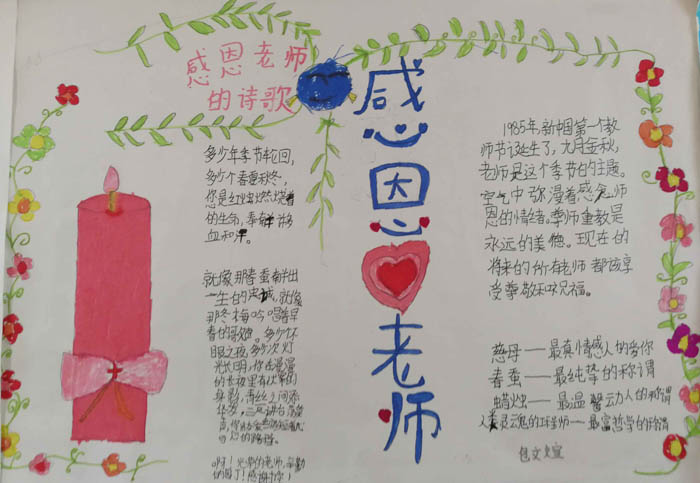 感恩老师
的诗歌
多少年季节轮回,
多少个春夏秋冬,
您是红烛燃烧着
的生命,奉献
血和汗。
就像那春蚕献出
一生的忠诚,就像
那冬梅吟唱着早
春的歌。多少个不
眠之夜,多少次灯
光长明,你在漫漫
的长夜里有伏案的
身影,青丝之间添
华发,三尺讲台
啊!光荣的老师,辛勤
的园丁!感谢
感恩
老师
1985年,新中国第一个教
师节诞生了,九月金秋,
老师是这个季节的主题。
空气中弥漫着感念师
恩的情绪。尊师重教是
永远的美德。现在的
将来的所有老师都该享
受尊敬和祝福。
慈母——最真情感人的
春蚕——最纯挚的称谓
蜡烛——最温馨动人的称谓
人类灵魂的工程师——最富哲学的称谓